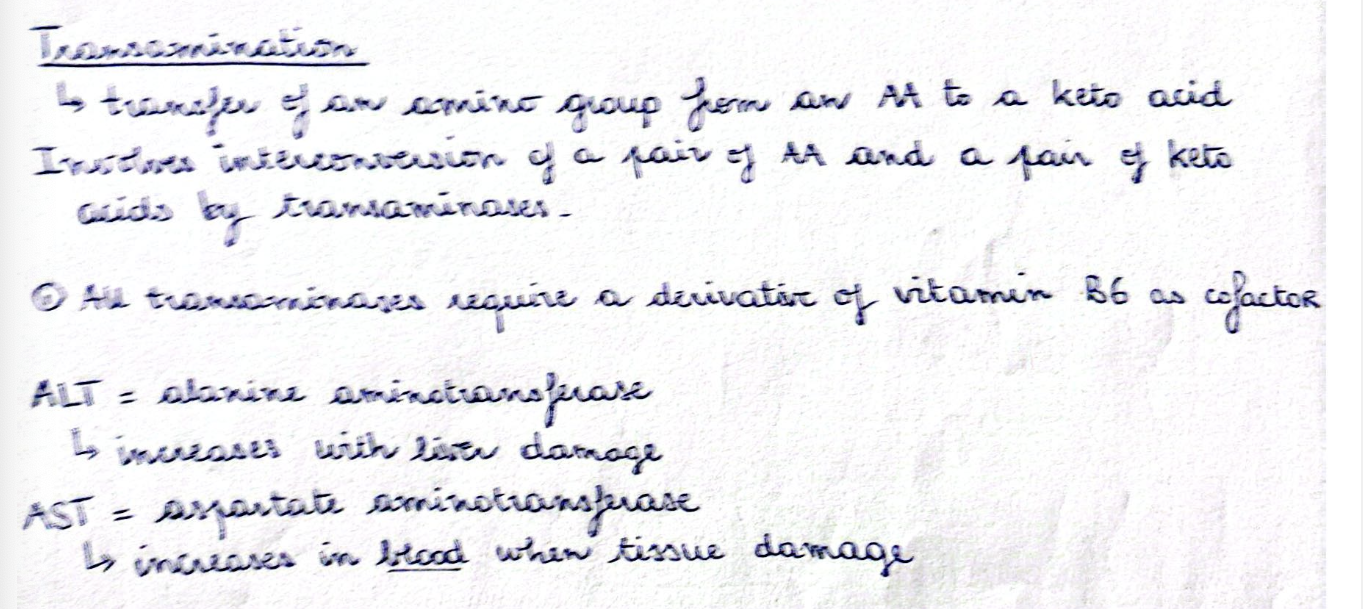 Transamination
↳ transfer of an amino group from an AA to a keto acid
Involves interconversion of a pair of AA and a pair of keto
acids by transaminases.
⊙ All transaminases require a derivative of vitamin B6 as cofactor
ALT = alanine aminotransferase
↳ increases with liver damage
AST = aspartate aminotransferase
↳ increases in blood when tissue damage